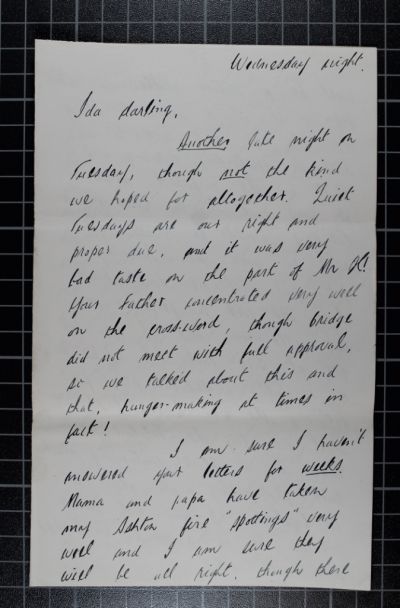 Wednesday night.
Ida darling,
Another late night on
Tuesday, though not the kind
we hoped for altogether. Quiet
Tuesdays are our right and
proper due, and it was very
bad taste on the part of Mr
Your Father concentrated very well
on the cross-word, though bridge
did not meet with full approval,
so we talked about this and
that, hunger-making at times in
fact!
I am sure I haven't
answered your letters for weeks.
Mama and papa have taken
my Ashton fire "spottings" very
well and I am sure they
will be all right, though there